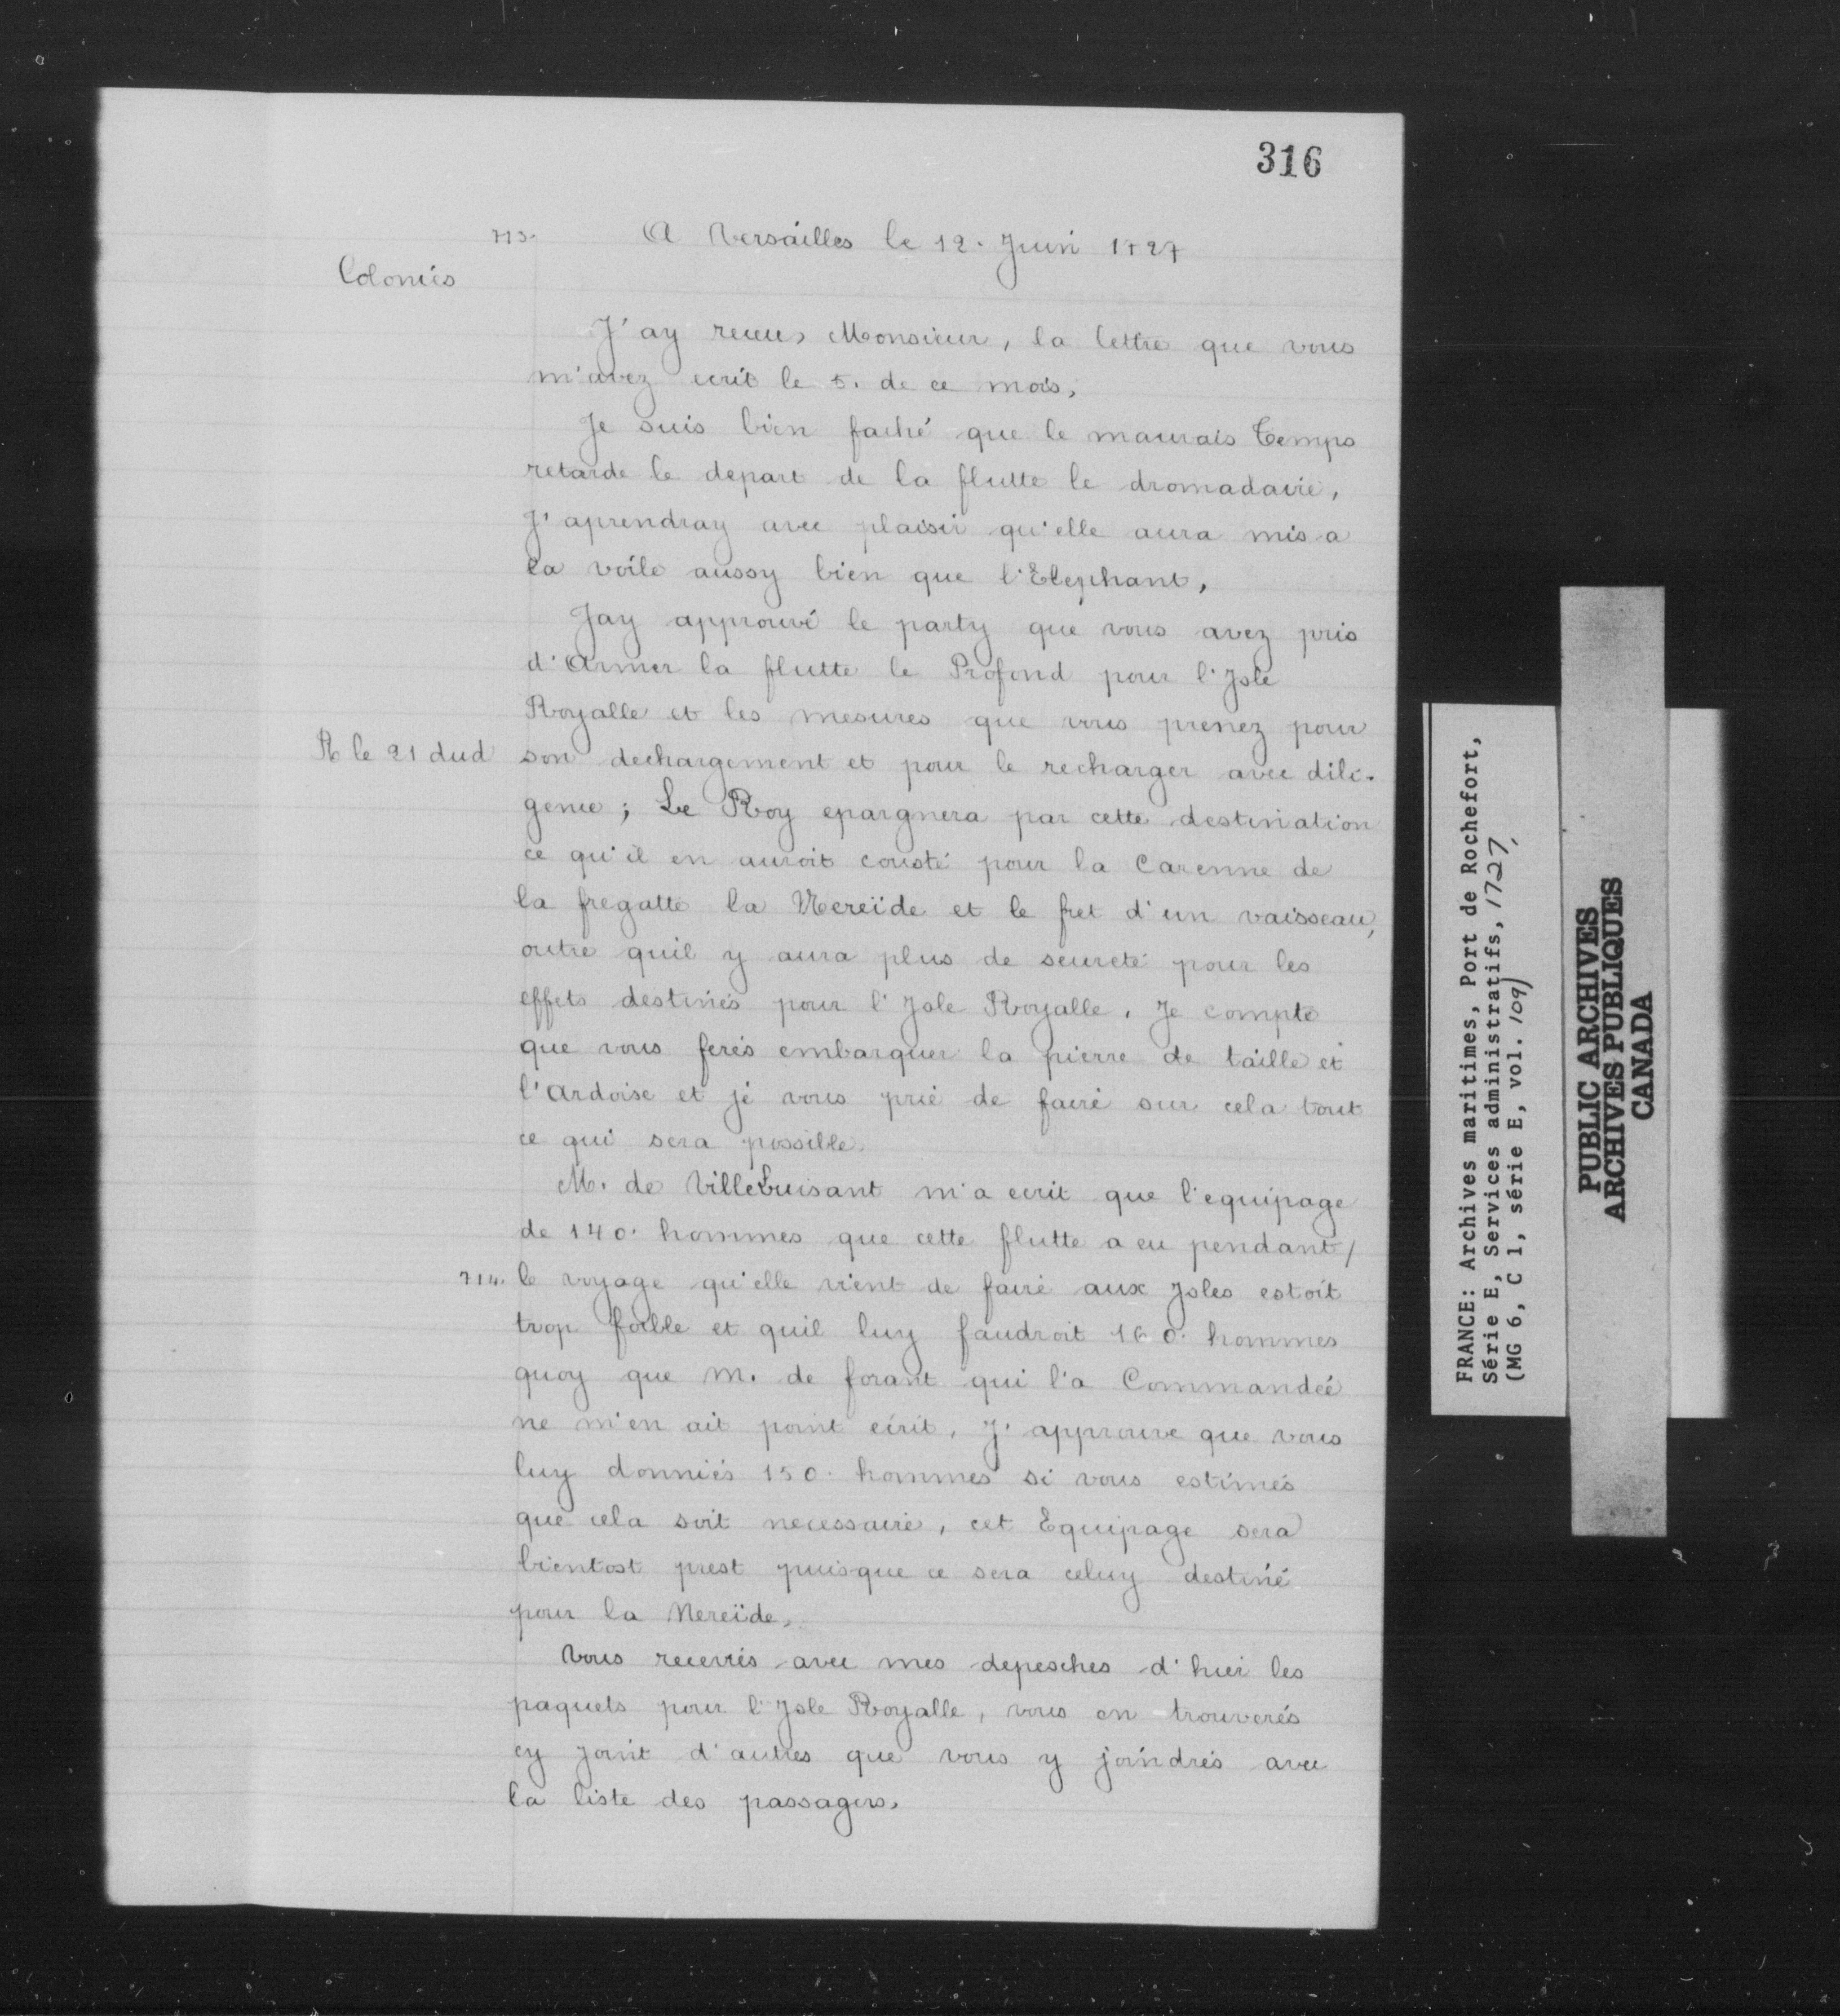 316
713. A Versailles le 12. Juin 1727
Colonies
J'ay receu, Monsieur, la lettre que vous
m'avez ecrit le 5. de ce mois,
Je suis bien faché que le mauvais Temps
retarde le depart de la flutte le dromadaire,
J'aprendray avec plaisir qu'elle aura mis a
la voile aussy bien que l'Elephant,
Jay approuvé le party que vous avez pris
d'Armer la flutte le Profond pour l'Isle
Royalle et les mesures que vous prenez pour
R le 21 dud son dechargement et pour le recharger avec dili-
gence; Le Roy epargnera par cette destination
ce qu'il en auroit cousté pour la Carenne de
la fregatte la Nereïde et le fret d'un vaisseau,
outre quil y aura plus de seureté pour les
effets destinés pour l'Isle Royalle. Je compte
que vous ferés embarquer la pierre de taille et
l'Ardoise et je vous prie de faire sur cela tout
ce qui sera possible.
M. de Villebuisant m'a ecrit que l'equipage
de 140. hommes que cette flutte a eu pendant/
714. le voyage qu'elle vient de faire aux Isles estoit
trop foible et quil luy faudroit 160. hommes
quoy que M. de forant qui l'a Commandée
ne m'en ait point ecrit, J'approuve que vous
luy donniés 150. hommes si vous estimés
que cela soit necessaire, cet Equipage sera
bientost prest puisque ce sera celuy destiné
pour la Nereïde,
Vous recevrés avec mes depesches d'hier les
paquets pour l'Isle Royalle, vous en trouverés
cy joint d'autres que vous y joindrés avec
la liste des passagers,
FRANCE: Archives maritimes, Port de Rochefort,
Série E, Services administratifs, 1727,
(MG 6, C 1, série E, vol. 109)
PUBLIC ARCHIVES
ARCHIVES PUBLIQUES
CANADA